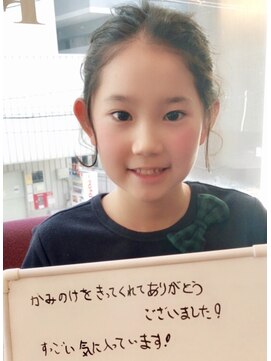 かみのけをきってくれてありがとう
ございました!
すっごい気に入っています!